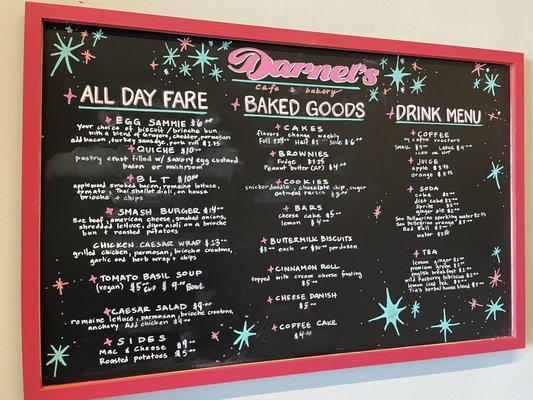 Darnel's
cafe & bakery
ALL DAY FARE
EGG SAMMIE $6
your choice of biscuit / brioche bun
with a blend of gruyere, cheddar, parmesan
add bacon, turkey sausage, pork roll $1.75
QUICHE $10
pastry crust filled w/ savory egg custard
bacon or mushroom
BLT $10
applewood smoked bacon, romaine lettuce,
tomato, dijonaioli, on house
brioche + chips
SMASH BURGER $14
5oz beef, american cheese, smoked onions,
shredded lettuce, dijon aioli on a brioche
bun + roasted potatoes
CHICKEN CAESAR WRAP $13
grilled chicken, parmesan, brioche croutons,
garlic and herb wrap + chips
TOMATO BASIL SOUP
(vegan) $5 Cup $9 Bowl
CAESAR SALAD $9
romaine lettuce, parmesan, brioche croutons,
anchovy Add chicken $4
SIDES
Mac & Cheese $9
Roasted potatoes $5
BAKED GOODS
CAKES
flavors change weekly
Full Half Slice 6
BROWNIES
Fudge $3.75
Peanut butter (GF) $4
COOKIES
snickerdoodle, chocolate chip, sugar
oatmeal raisin
BARS
cheese cake $5
lemon $4
BUTTERMILK BISCUITS
each or per dozen
CINNAMON ROLL
topped with cream cheese frosting
$5
CHEESE DANISH
$5
COFFEE CAKE
$4.00
DRINK MENU
COFFEE
coffee roasters
SMALL LARGE
JUICE
apple
orange
SODA
coke
diet coke
Sprite
ginger ale
San Pellegrino sparkling water
San Pellegrino orange
Red Bull
water
TEA
lemon ginger
premium green
english breakfast
wild raspberry hibiscus
Lemon iced tea
Tia's herbal house blend